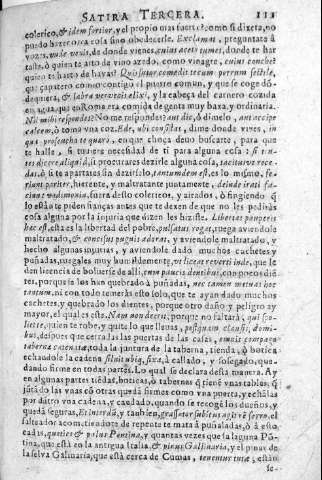 SATIRA TERCERA. 111
colerico, & idem fortior, y el propio mas fuerte: como si dixera, no
puedo hazer otra cosa sino obedecerle. Exclamat, preguntate à
vozes, unde venis, de donde vienes, cuius aceto tumes, donde te har
taste, ò quien te atio de vino azedo, como vinagre, cuius conche
quien te harto de havas? Quis tecum
que çapatero como contigo el puerro comun, y que se coge dõ-
dequiera, & labra vervecis elixi, y la cabeça del carnero cozida
en agua, que en Roma era comida de gente muy baxa, y ordinaria.
Nil mihi respondes? No me respondes? aut dic, ò dimelo, aut accipe
calcem, ò toma vna coz. Ede, ubi consistas, dime donde vives, in
qua proseucha te quæro, en que choça devo buscarte, para que
te halle, si tuviere necesidad de ti para alguna cosa:
tes dicere aliquid, si procurares dezirle alguna cosa, tacitusve rece-
das, ò si te apartares sin dezirselo, tantumdem est, es lo mismo, fe-
riunt pariter, hierente, y maltratante juntamente, deinde irati fa-
ciunt vadimonia, fuera desto colericos, y airados, ò fingiendo q̃
lo están te piden fianças antes que te dexen de que no les pedirás
cosa alguna por la injuria que dizen les hiziste. Libertas pauperis
hæc est, esta es la libertad del pobre, pulsatus rogat, ruega aviendole
maltratado, & concisus pugnis adorat, y aviendole maltratado, y
hecho algunas injurias, y aviendole dado muchos cachetes y
puñadas, ruegales muy humildemente, ut liceat reverti inde, que le
den licencia de bolverse de alli, cum paucis dentibus, con pocos diẽ-
tes, porque se los han quebrado à puñadas, nec tamen metuas hoc
tantum, ni con todo temeràs esto solo, que te ayan dado muchos
cachetes, y quebrado los dientes, porque otro daño y peligro ay
mayor, el qual es este. Nam non deerit, porque no faltarà, qui spo-
liet te, quien te robe, y quite lo que lleuas, postquam clausis domi-
bus, despues que cerradas las puertas de las casas, omnis compago
tabernæ catenatæ, toda la juntura de la taberna, tienda, ò botica
echandole la cadena siluit ubique, fixa, à callado, y sosegado, que-
dando firme en todas partes. Lo qual se declara desta manera. Ay
en algunas partes tiẽdas, boticas, ò tabernas q̃ tiene vnas tablas, q̃
juntadas las vnas cõ otras queda firme como vna puerta, y echãlas
por dentro vna cadena, y candado, quando se recogẽ los dueños, y
queda seguras, Et interdũ, y tambien, grassator subitus agit rẽ ferro, el
salteador acometiendote de repente te mata à puñaladas, ò à esto-
cadas, quoties & palus Pontina, y quantas vezes que la laguna Põ-
tina, que està en la antigua Italia, & pinus Gallinaria, y el pinar de
la selva Galinaria, que està cerca de Cumas, tenentur tutæ, están
se-